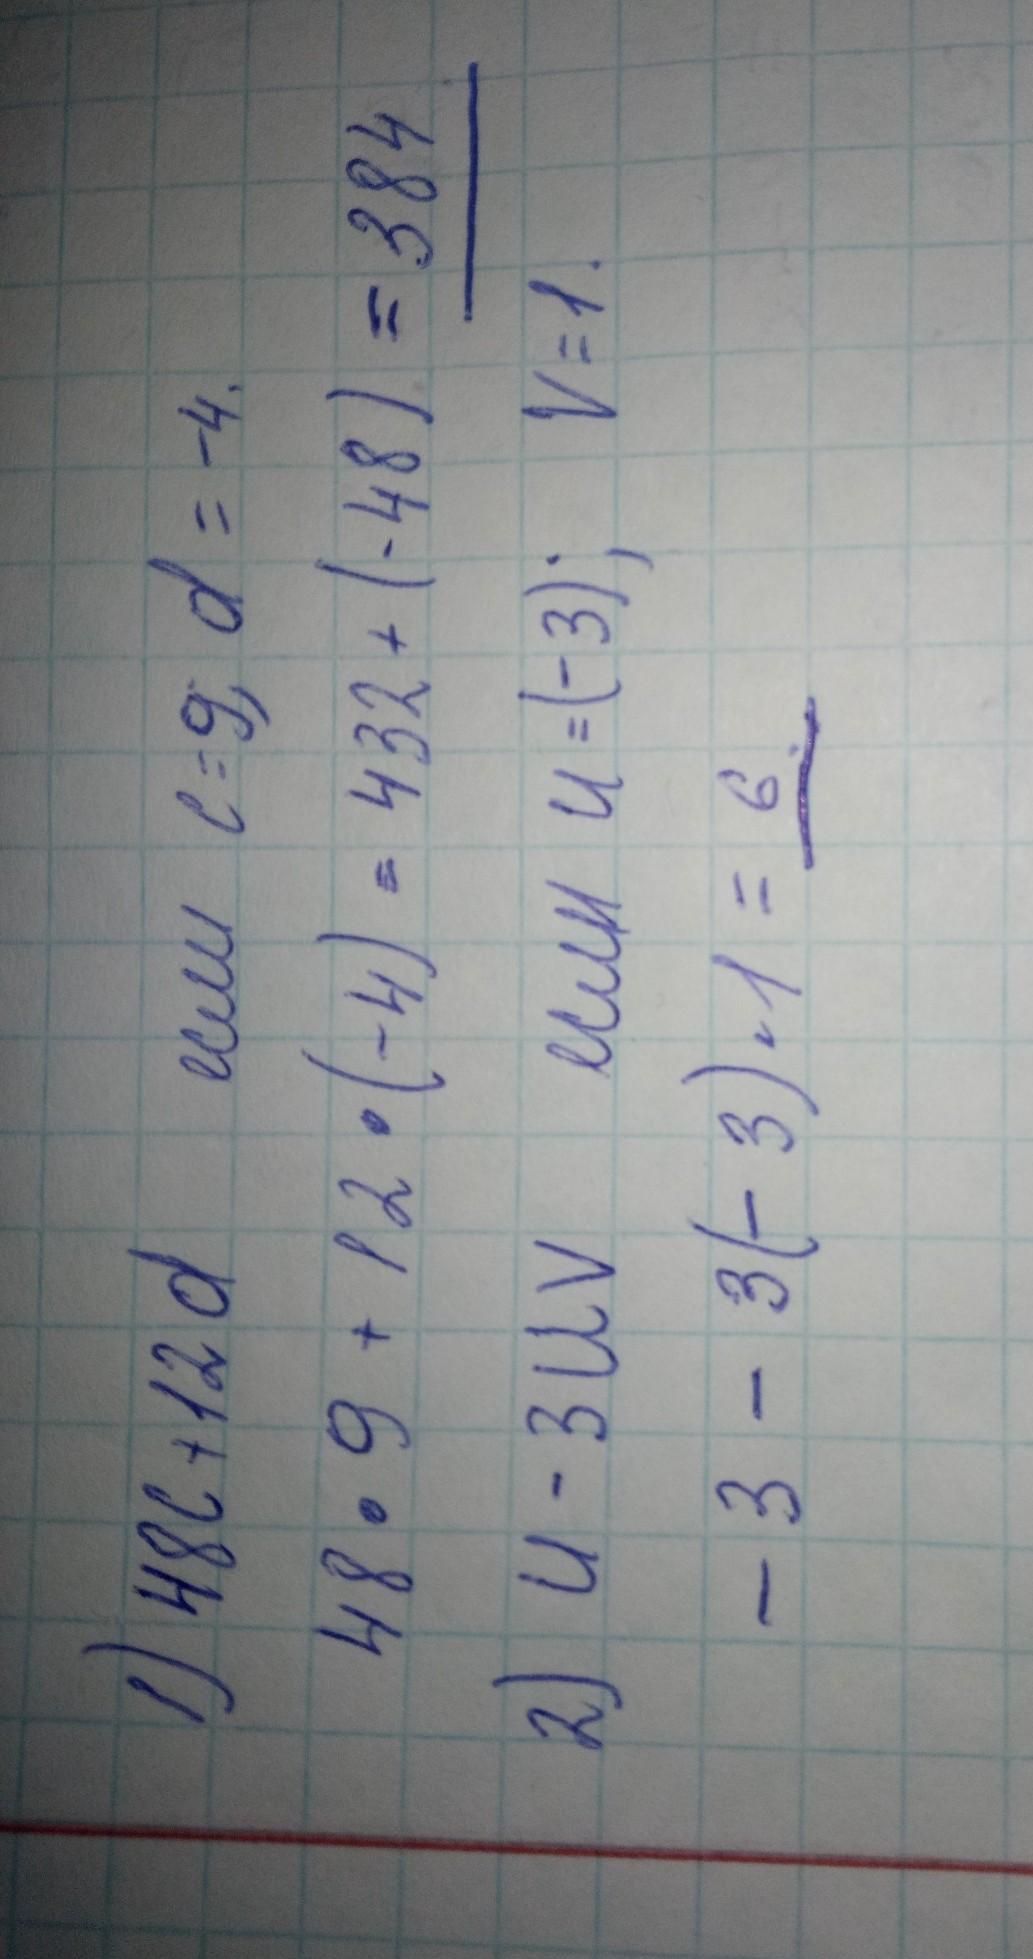 1) 48c+12d если c=9, d=-4.
48•9+12•(-4)=432+(-48)=384
2) u-3uv если u=(-3); v=1.
-3-3(-3)•1=6